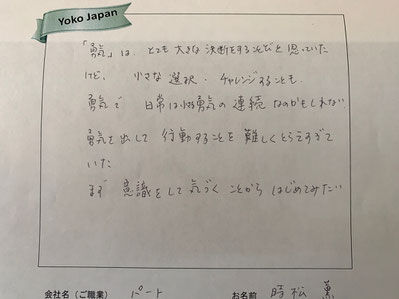 Yoko Japan
「勇気」は、とても大きな決断をすることだと思っていた
けど、小さな選択・チャレンジすることも
勇気で 日常は小さな勇気の連続なのかもしれない
勇気を出して 行動することを 難しくとらえすぎて
いた
まず 意識をして気づくことからはじめてみたい
会社名（ご職業） パート お名前 時松